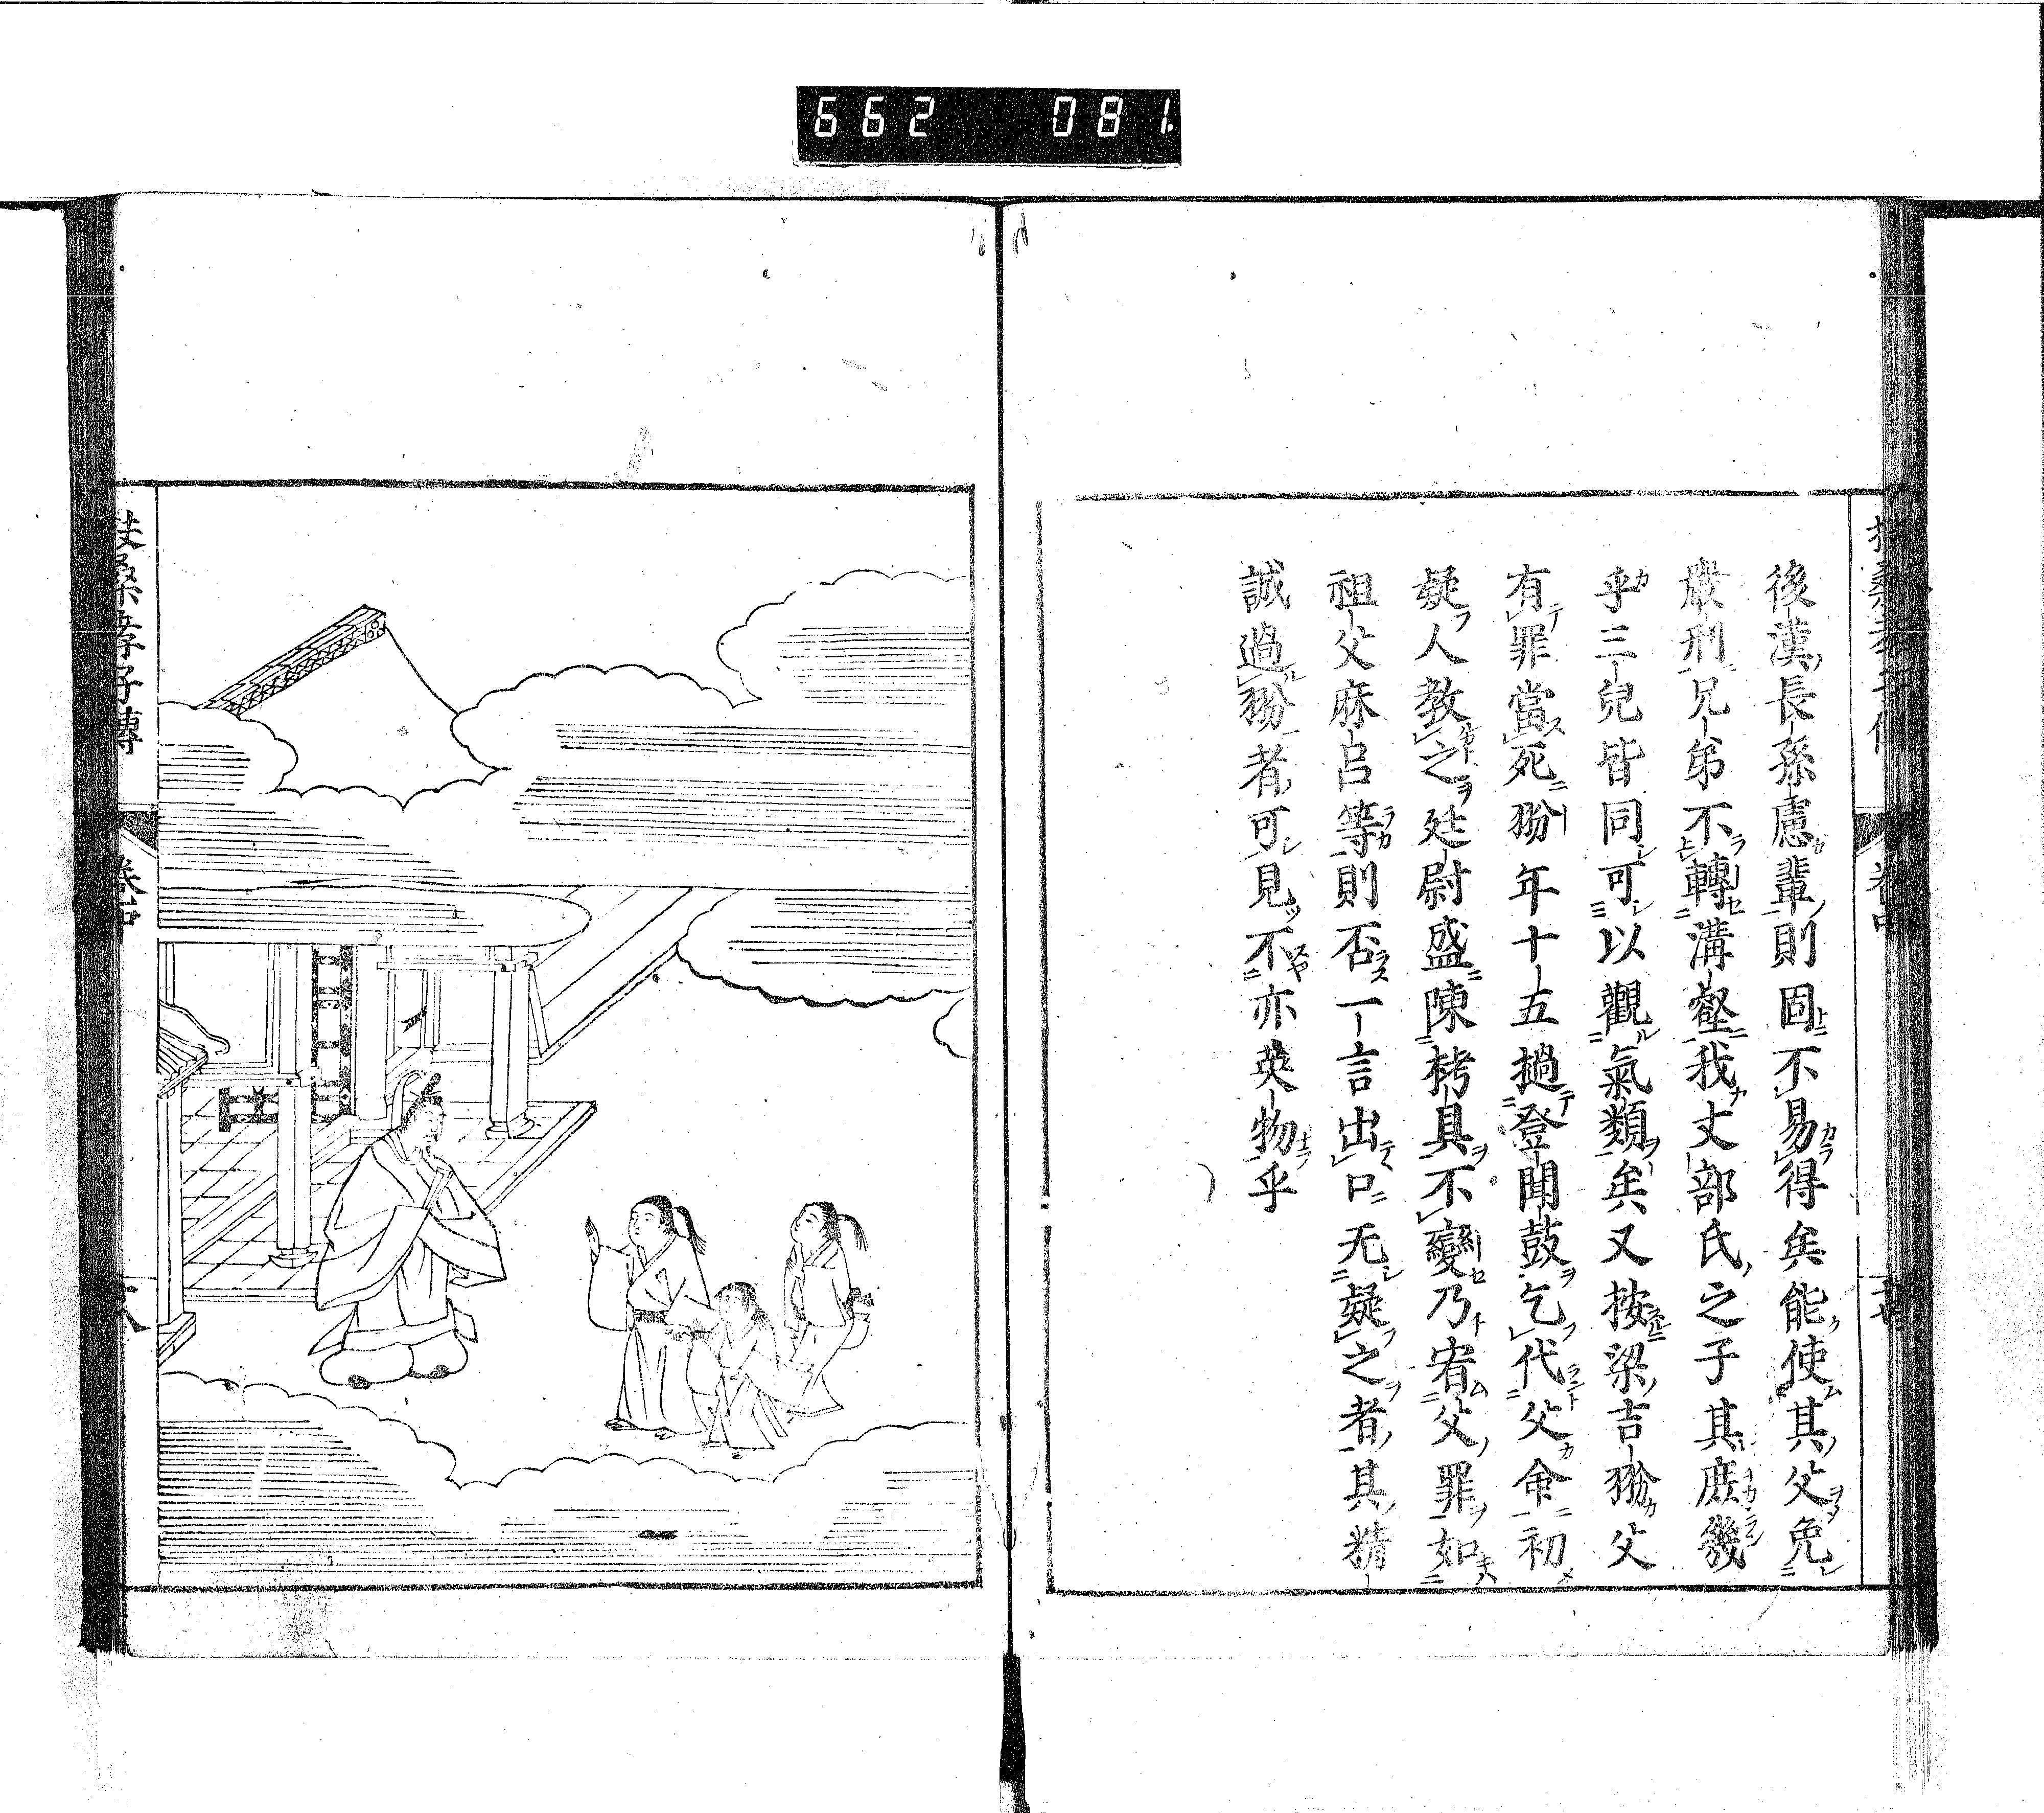 662 081
後漢長孫慮輩則固不易得矣能使其父免
嚴刑兄弟不轉溝壑我丈部氏之子其庶幾
乎三兒皆同可以觀氣類矣又按梁吉翂父
有罪當死翂年十五撾登聞鼓乞代父命初
疑人教之廷尉盛陳栲具不變乃宥父罪如
祖父麻呂等則否一言出口无疑之者其精
誠過翂者可見不亦英物乎
扶桑孝子傳
卷中